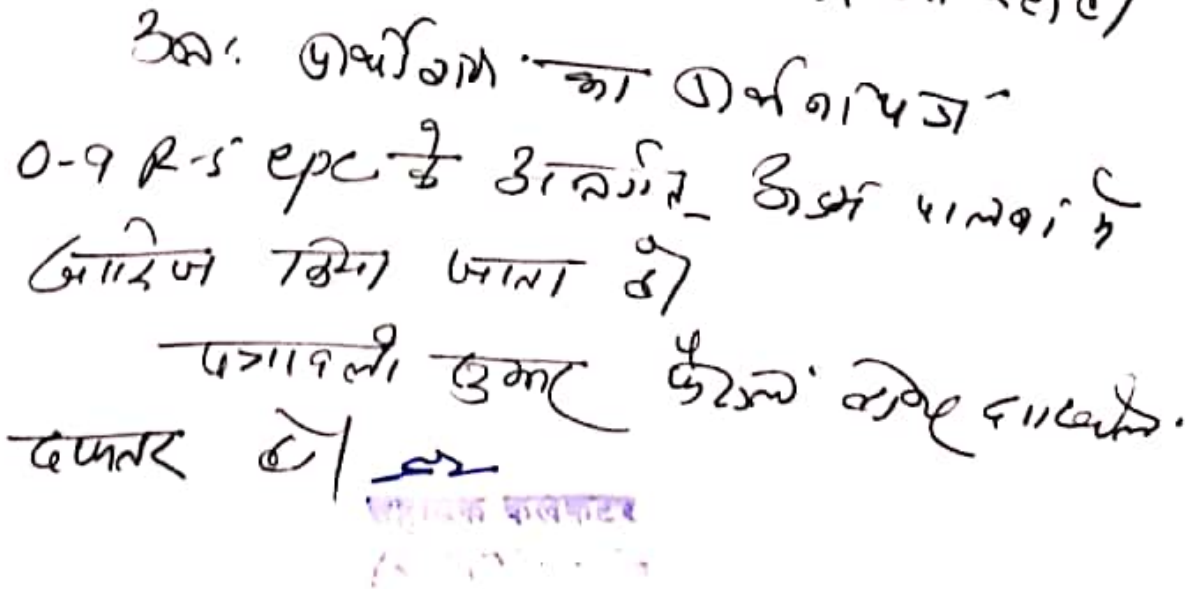 रहा है।
अतः प्रार्थीगण का प्रार्थना पत्र
0-9 R-5 CPC के अन्तर्गत अदम पालना में
खारिज किया जाता है।
पत्रावली शुमार फैसल होकर दाखिल
दफ्तर हो।
सहायक कलक्टर